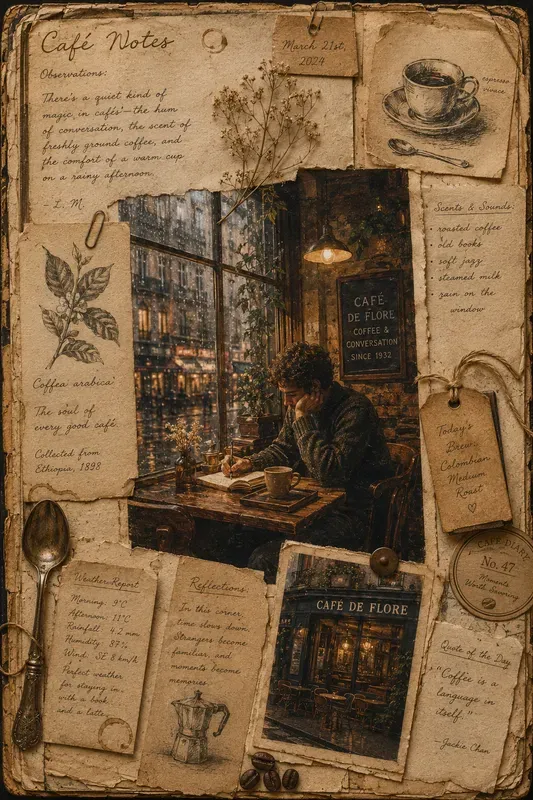 Café Notes
Observations:
There's a quiet kind of
magic in cafés—the hum
of conversation, the scent of
freshly ground coffee, and
the comfort of a warm cup
on a rainy afternoon.
- L. M.
March 21st,
2024
espresso
Scents & Sounds:
• roasted coffee
• old books
• soft jazz
• steamed milk
• rain on the
window
Coffea arabica
The soul of
every good café
Collected from
Ethiopia, 1898
CAFÉ
DE FLORE
COFFEE &
CONVERSATION
SINCE 1932
Today's
Brew:
Colombian
Medium
Roast
♡
CAFÉ DIARY
No. 47
Moments
Worth Savoring
Weather Report
Morning: 9°C
Afternoon: 11°C
Rainfall: 4.2 mm
Humidity: 87%
Wind: SE 8 km/h
Perfect weather
for staying in
with a book
and a latte.
Reflections:
In this corner,
time slows down.
Strangers become
familiar, and
moments become
memories.
CAFÉ DE FLORE
Quote of the Day
"Coffee is a
language in
itself."
—Jackie Chan